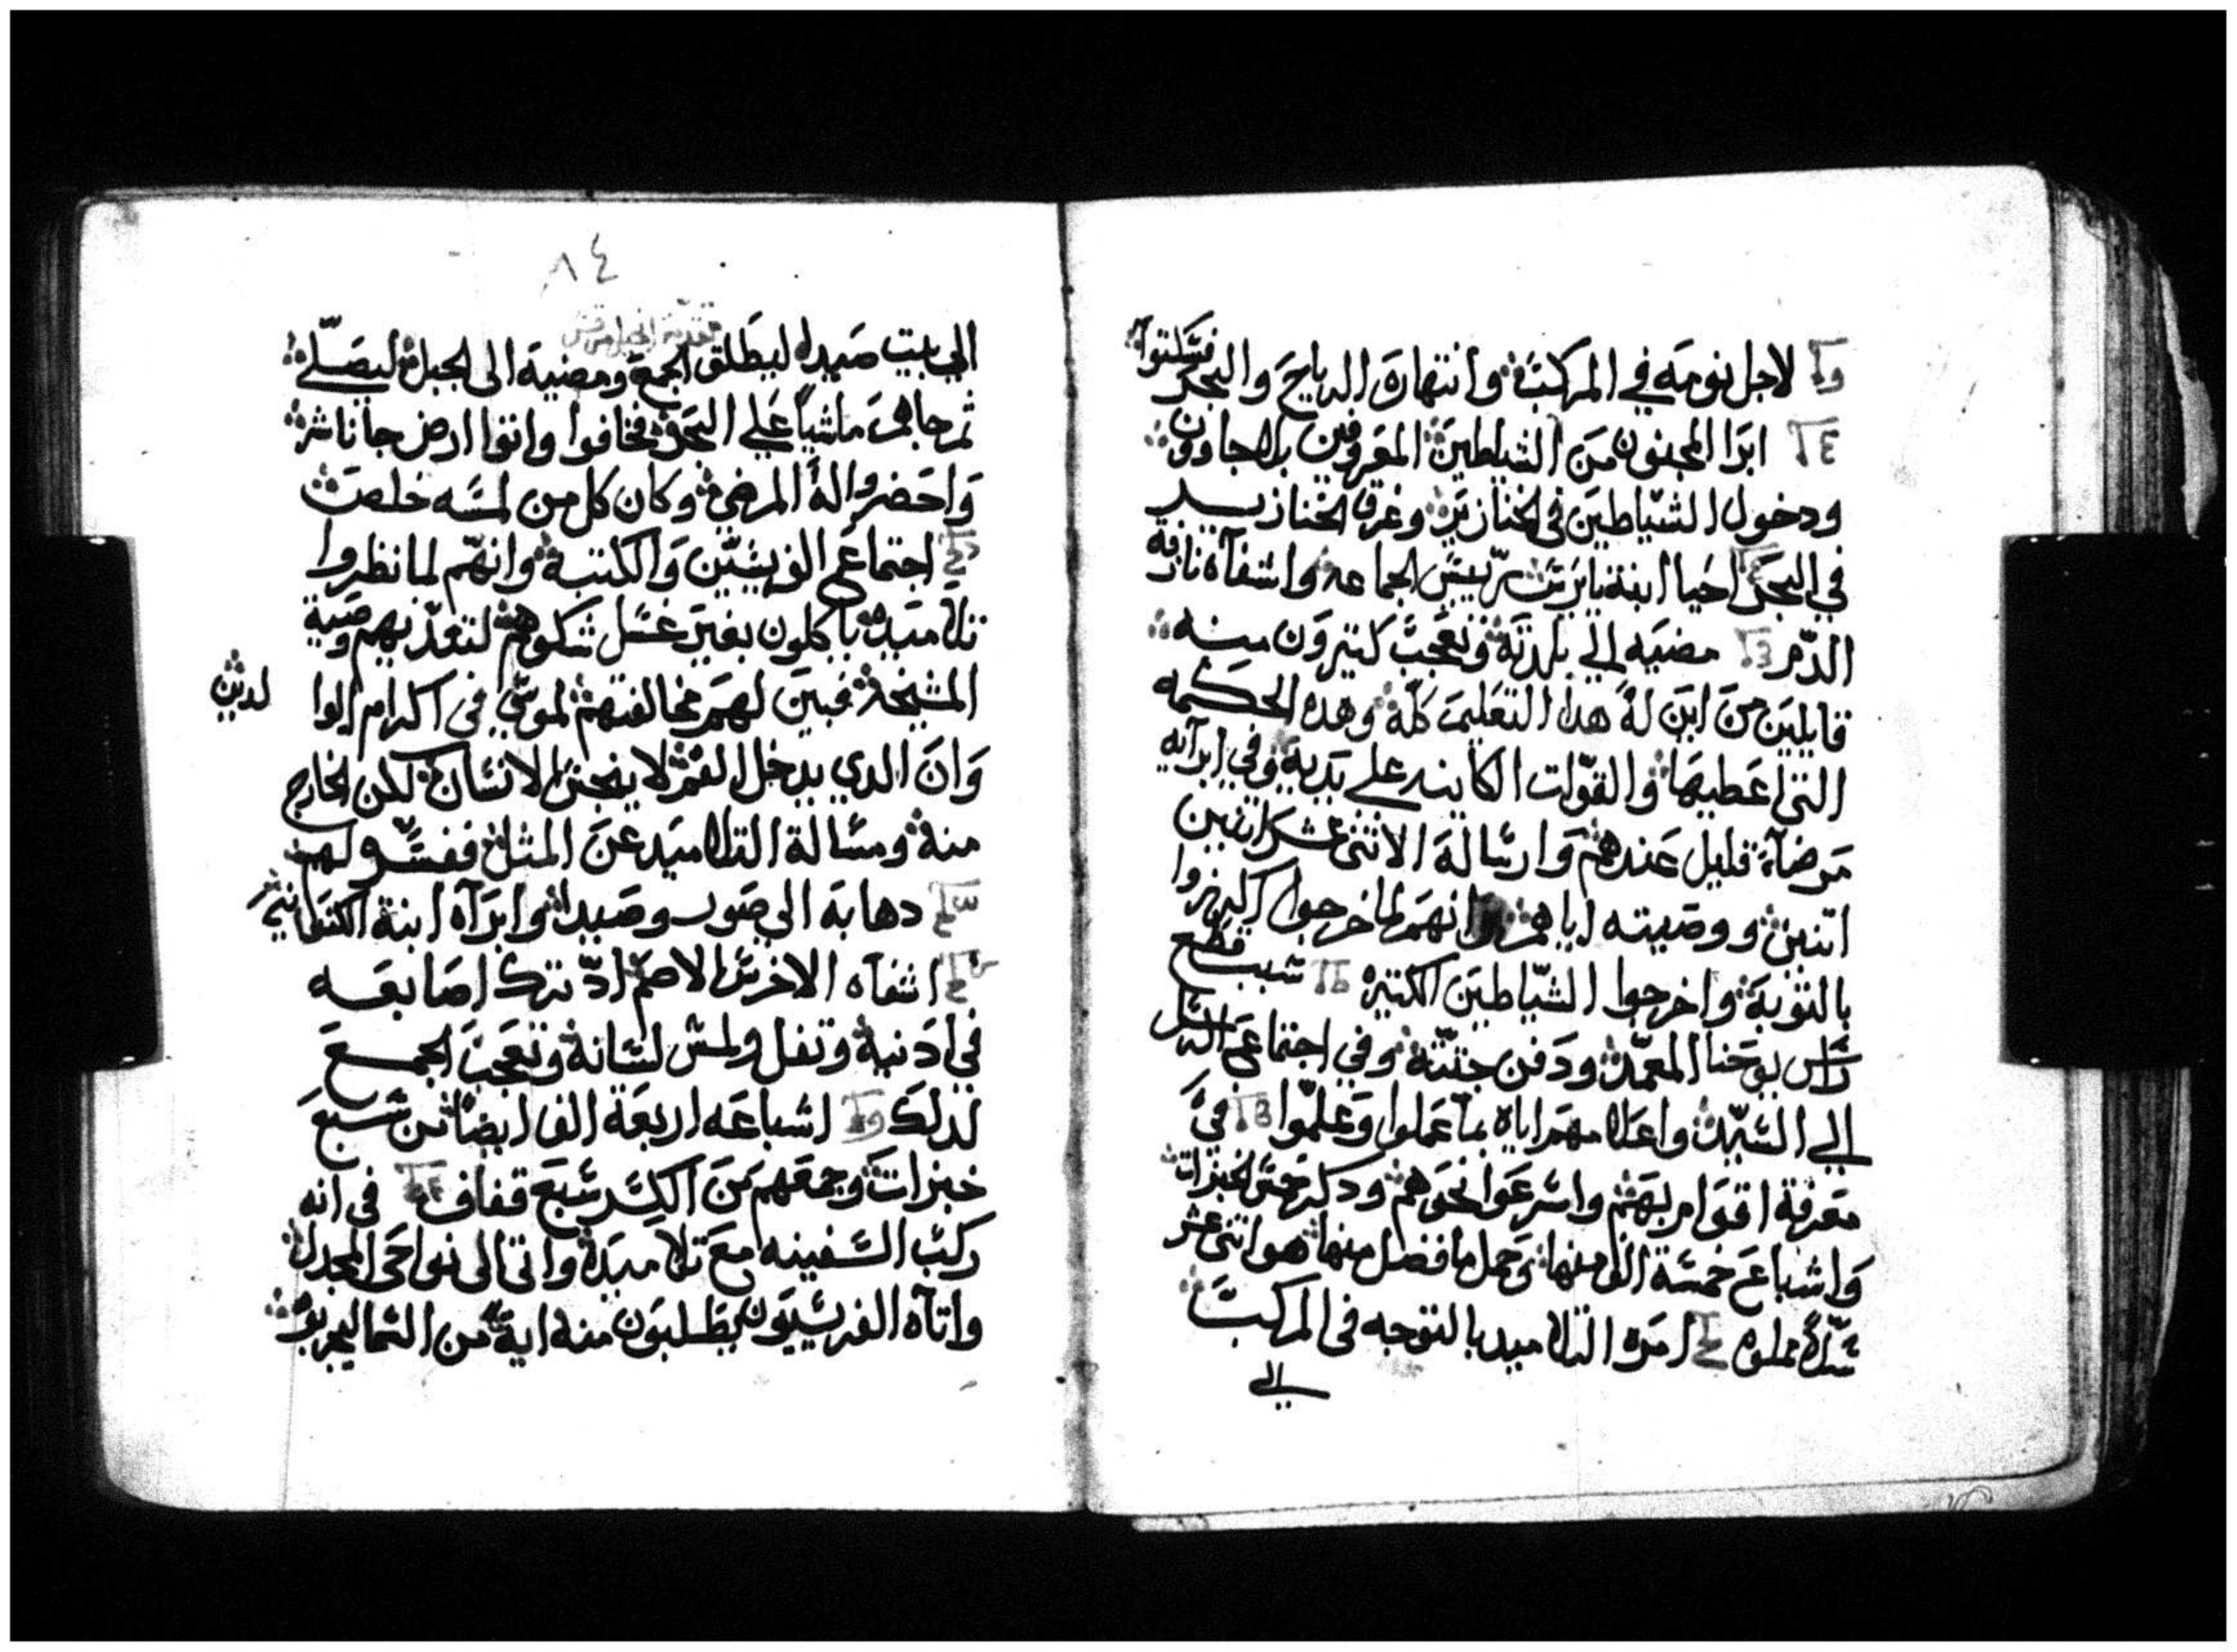 لاجل نومه في المركب وانتهاره الرياح والبحر فسكتوا
ابرا المجنون من الشياطين المعروفين بلاجاوون
ودخول الشياطين في الخنازير وغرق الخنازير
في البحر احيا ابنة يايرس رييس الجماعه واشفاه نازفة
الدم مضيه الي بلدته وتعجب كتيرون منه
قايلين من اين له هدا التعليم كله وهده الحكمه
التي اعطيها والقوات الكاينه علي يديه وفي ابرآيه
مرضاة قليل عندهم وارساله الاتني عشر اتنين
اتنين ووصيته اياهم وانهم لما خرجوا اكرزوا
بالتوبة واخرجوا الشياطين الكتيره سبب قطع
راس يوحنا المعمد ودفن جتته وفي اجتماع الرسل
الي السيد واعلامهم اياه بما عملوا وعلموا في
معرفة اقوام بهم واسرعوا نحوهم ودكر خمس الخبزات
واشباع خمسة الف منها وحمل ما فضل منها هو اتني عشر
سلاً مملوه امره التلاميد بالتوجه في المركب
الي
٨٤
الي بيت صيدا ليطلق الجمع ومضيه الى الجبل ليصلي
تم جا ماشياً علي البحر فخافوا واتوا ارض جاناشر
واحضروا له المرضي وكان كل من لمسه خلص
اجتماع الفريسيين والكتبة وانهم لما نظروا
تلاميده ياكلون بغير غسل شكوهم لتعديهم وصية
المشيخة فبين لهم مخالفتهم لموسي في اكرام الوا
لدين
وان الدي يدخل الفم لا ينجس الانسان لكن الخارج
منه ومسالة التلاميد عن المتل ففسره لهم
دهابه الي صور وصيدا وابرآه ابنة الكنعانية
اشفاه الاخرس الاصم اد ترك اصابعه
في ادنيه وتفل ولمس لسانه وتعجب الجمع
لدلك اشباعه اربعة الف ايضا من سبع
خبزات وجمعهم من الكسر سبع قفاف في انه
ركب السفينه مع تلاميده واتى الى نواحى المجدل
واتاه الفريسيون يطلبون منه اية من السما ليجربوه